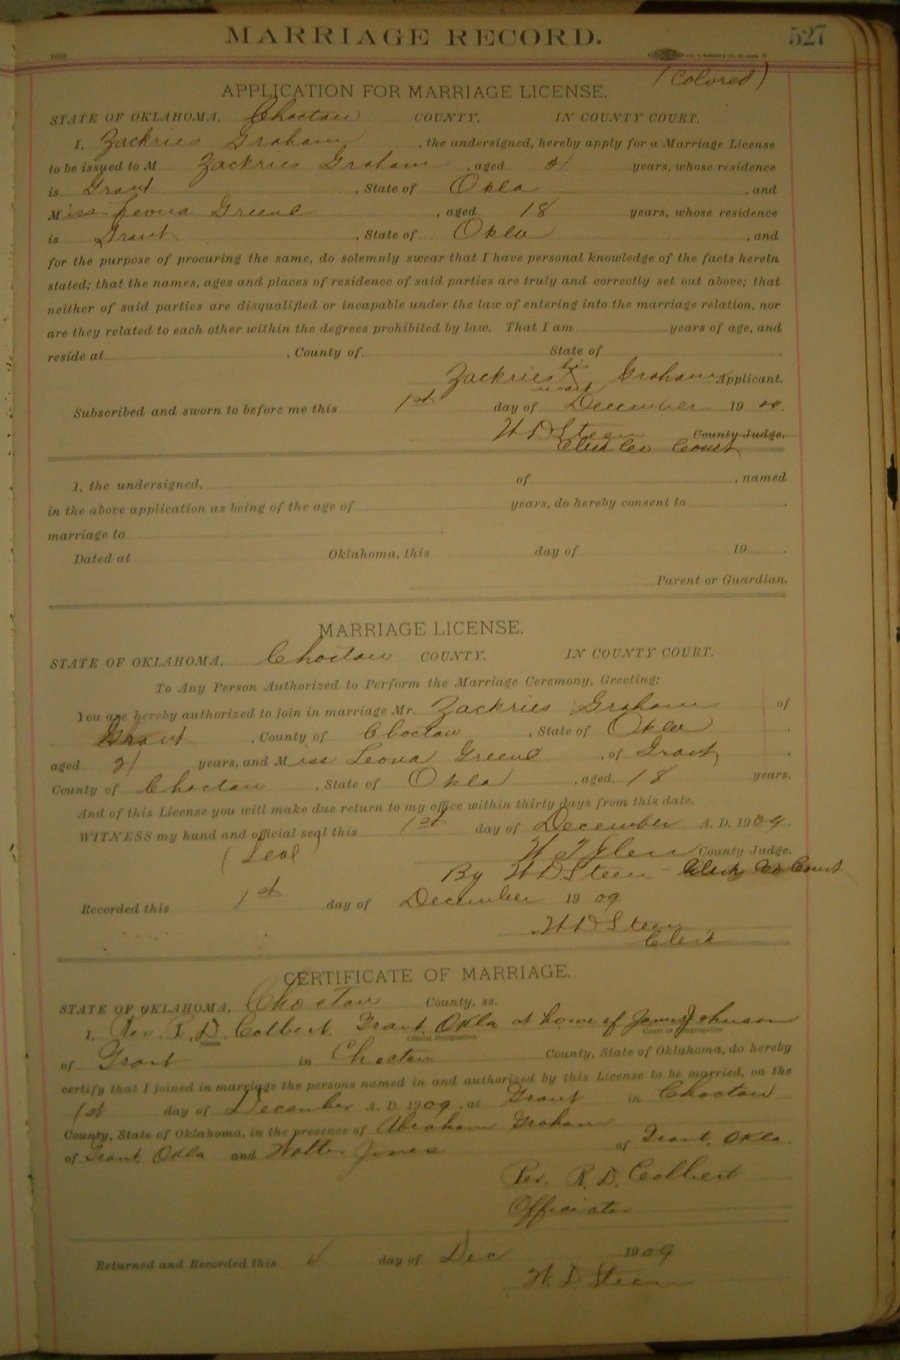 MARRIAGE RECORD. 527
(Colored)
APPLICATION FOR MARRIAGE LICENSE.
STATE OF OKLAHOMA, Choctaw COUNTY. IN COUNTY COURT.
I, Zackries Graham, the undersigned, hereby apply for a Marriage License
to be issued to M Zackries Graham, aged 21 years, whose residence
is Grant, State of Okla, and
Miss Leona Greene, aged 18 years, whose residence
is Grant, State of Okla, and
for the purpose of procuring the same, do solemnly swear that I have personal knowledge of the facts herein
stated; that the names, ages and places of residence of said parties are truly and correctly set out above; that
neither of said parties are disqualified or incapable under the law of entering into the marriage relation, nor
are they related to each other within the degrees prohibited by law. That I am years of age, and
reside at , County of State of .
Zackries his X mark Graham Applicant.
Subscribed and sworn to before me this 1st day of December 19 09.
W D Steen County Judge.
Clerk Co Court
I, the undersigned, of , named
in the above application as being of the age of years, do hereby consent to
marriage to
Dated at Oklahoma, this day of 19 .
Parent or Guardian.
MARRIAGE LICENSE.
STATE OF OKLAHOMA, Choctaw COUNTY. IN COUNTY COURT.
To Any Person Authorized to Perform the Marriage Ceremony, Greeting:
You are hereby authorized to join in marriage Mr. Zackries Graham of
Grant, County of Choctaw, State of Okla,
aged 21 years, and Miss Leona Greene, of Grant,
County of Choctaw, State of Okla, aged 18 years.
And of this License you will make due return to my office within thirty days from this date.
WITNESS my hand and official seal this 1st day of December A. D. 1909.
(Seal) W T Glenn County Judge.
By W D Steen - Clerk Co Court
Recorded this 1st day of December 19 09
W D Steen
Clerk
CERTIFICATE OF MARRIAGE.
STATE OF OKLAHOMA, Choctaw County, ss.
I, Rev. R. D. Colbert, Grant, Okla at home of James Johnson
Name Official Designation Court or Congregation
of Grant in Choctaw County, State of Oklahoma, do hereby
certify that I joined in marriage the persons named in and authorized by this License to be married, on the
1st day of December A. D. 1909, at Grant in Choctaw
County, State of Oklahoma, in the presence of Abraham Graham
of Grant Okla and Walter Jones of Grant, Okla.
Rev. R. D. Colbert
Officiator
Returned and Recorded this 4 day of Dec 1909
W. D. Steen